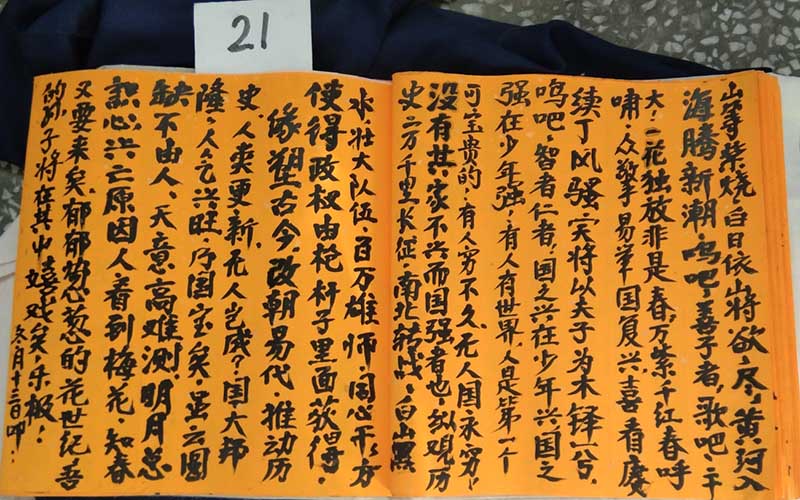 21
山等紫烧，白日依山将欲尽，黄河入
海腾新潮。呜吧，善子者，歌吧，千
大，一花独放非是春，万紫千红春呼
啸，众擎易举国复兴，喜看庆
续丁风骚，天将以夫子为木铎一兮，
呜吧，智者仁者，国之兴在少年兴国之
强在少年强，有人有世界，人是第一个
可宝贵的，有人穷不久，无人国永穷，
没有其家不兴而国强者也，纵观历
史二万千里长征，南北转战，白山黑
水，壮大队伍，百万雄师，同心干，方
使得政权由枪杆子里面获得，
缘塑古今，改朝易代，推动历
史，人卖更新，无人岂成？国大邦
隆，人气兴旺，序国宝矣，虽云圆
缺不由人，天意高难测，明月总
识心兴亡原因人，看到梅花，知春
又要来矣，郁郁葱葱的花世纪善
的孙子将在其中嬉戏矣，乐极，
冬月十二日叩，